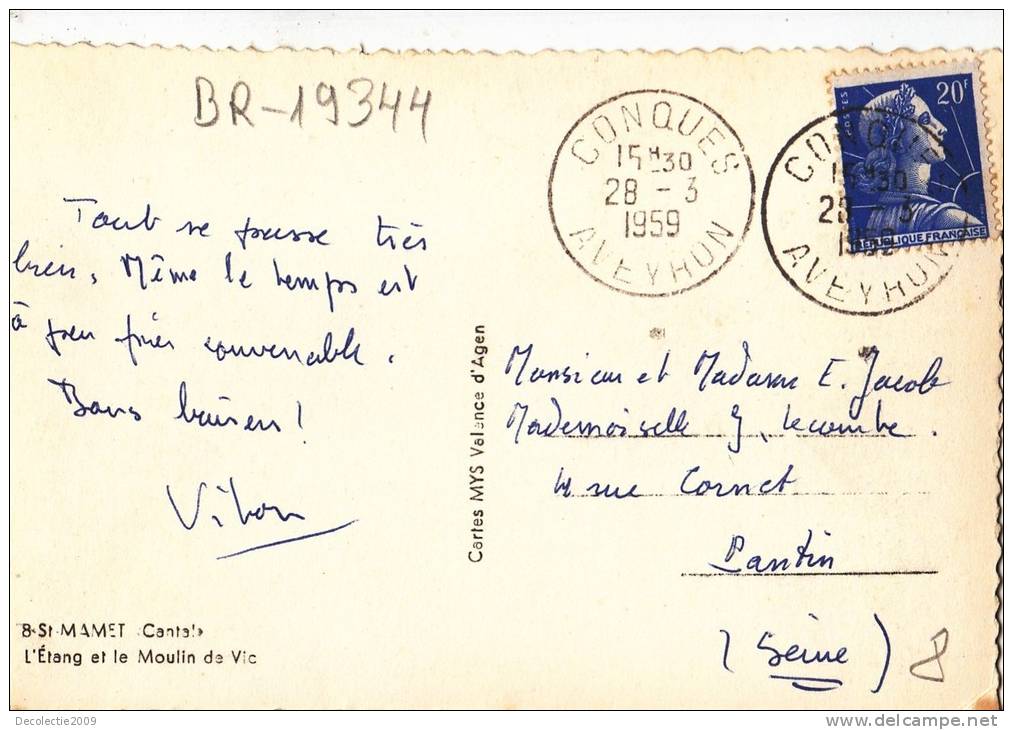 BR-19344
CONQUES
15H30
28 - 3
1959
AVEYRON
POSTES
20F
REPUBLIQUE FRANÇAISE
CONQUES
15H30
28 - 3
1959
AVEYRON
Tout se passe très
bien, Même le temps est
à peu près convenable.
Bons baisers!
Cartes MYS Valence d'Agen
Monsieur et Madame E. Jacob
Mademoiselle J. Lecombe.
4 rue Cornet
Pantin
(Seine)
8
8-St-MAMET (Cantal)
L'Étang et le Moulin de Vic
Decolectie2009
www.delcampe.net